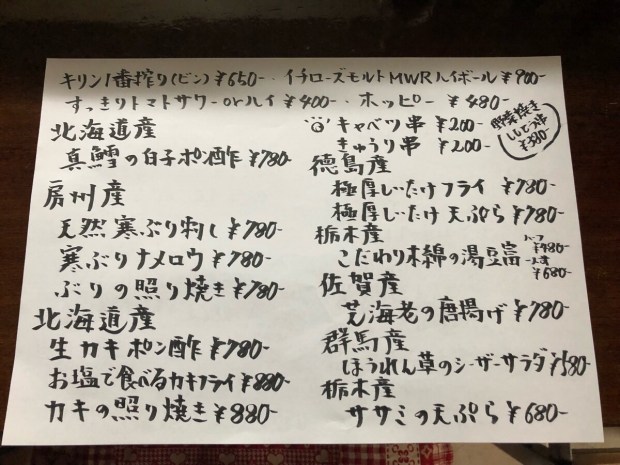 キリン1番搾り(ビン)¥650-・イチローズモルトMWRハイボール¥900-
すっきりトマトサワーorハイ¥400-・ホッピー¥480-
北海道産
真鱈の白子ポン酢¥780-
房州産
天然寒ぶり刺し¥780-
寒ぶりナメロウ¥780-
ぶりの照り焼き¥780-
北海道産
生カキポン酢¥780-
お塩で食べるカキフライ¥880-
カキの照り焼き¥880-
キャベツ串¥200-
きゅうり串¥200-
野菜焼き
ししとう串
¥380-
徳島産
極厚しいたけフライ¥780-
極厚しいたけ天ぷら¥780-
栃木産
こだわり木綿の湯豆富
ハーフ¥480-
一人す
¥680-
佐賀産
芝海老の唐揚げ¥780-
群馬産
ほうれん草のシーザーサラダ¥580-
栃木産
ササミの天ぷら¥680-